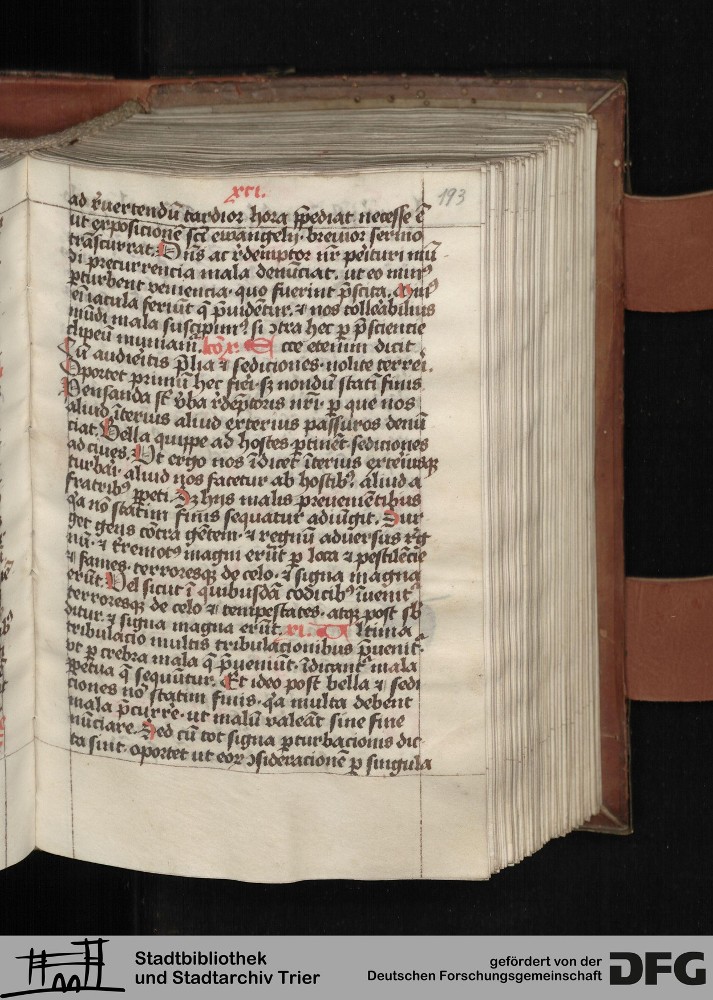 xci.
193
ad r̄uertendū tardior hora p̄pediat necesse ē
ut exposicionē sc̄i ewangelij· breuior sermo
trāscurrat. Dn̄s ac r̄demptor nr̄ peituri mū
di precurrencia mala denūciat. ut eo minꝰ
ꝑturbent veniencia· quo fuerint p̄scita. Minꝰ
ei iacula feriūt q̄ p̄uidētur. ⁊ nos tollerabiliꝰ
mūdi mala suscipimꝰ si ↄtra hec ꝑ p̄sciencie
clipeū munimur. lcō x. Ecce etenim dicit
Cū audieritis p̄lia ⁊ sediciones· nolite terreri.
Oportet primū hec fieri· sꝫ nondū statī finis
Pensanda sūt v̄ba r̄dēptoris nr̄i· ꝑ que nos
aliud īterius aliud exterius passuros denū
ciat. Bella quippe ad hostes ꝑtinēt· sediciones
ad ciues. Ut ergo nos īdicet īterius exteriusqꝫ
turbari· aliud nos fatetur ab hostibꝰ aliud a
fratribꝰ ꝑpeti. Sꝫ hijs malis preuenientibus
qa nō statim finis sequatur adiūgit. Sur
get gens contra gētem· ⁊ regnū aduersus r̄g
nū· ⁊ t̄remotꝰ magni erūt ꝑ loca ⁊ pestilēcie
⁊ fames· terroresqꝫ de celo· ⁊ signa magna
erūt. Vel sicut ī quibusdā codicibꝰ īuenit
terroresqꝫ de celo ⁊ tempestates· atqꝫ post sb̄
ditur. ⁊ signa magna erūt. xi. Ultima
tribulacio multis tribulacionibus p̄uenit·
vt ꝑ crebra mala q̄ p̄ueniūt· īdicant᷑ mala
ꝑpetua q̄ sequūtur. Et ideo post bella ⁊ sedi
ciones nō statim finis· qa multa debent
mala p̄curr̄e· ut malū valeāt sine fine
nūciare. Sed cū tot signa ꝑturbacionis dic
ta sint· oportet ut eoꝝ ↄsideracionē ꝑ singula
Stadtbibliothek
und Stadtarchiv Trier
gefördert von der
Deutschen Forschungsgemeinschaft
DFG